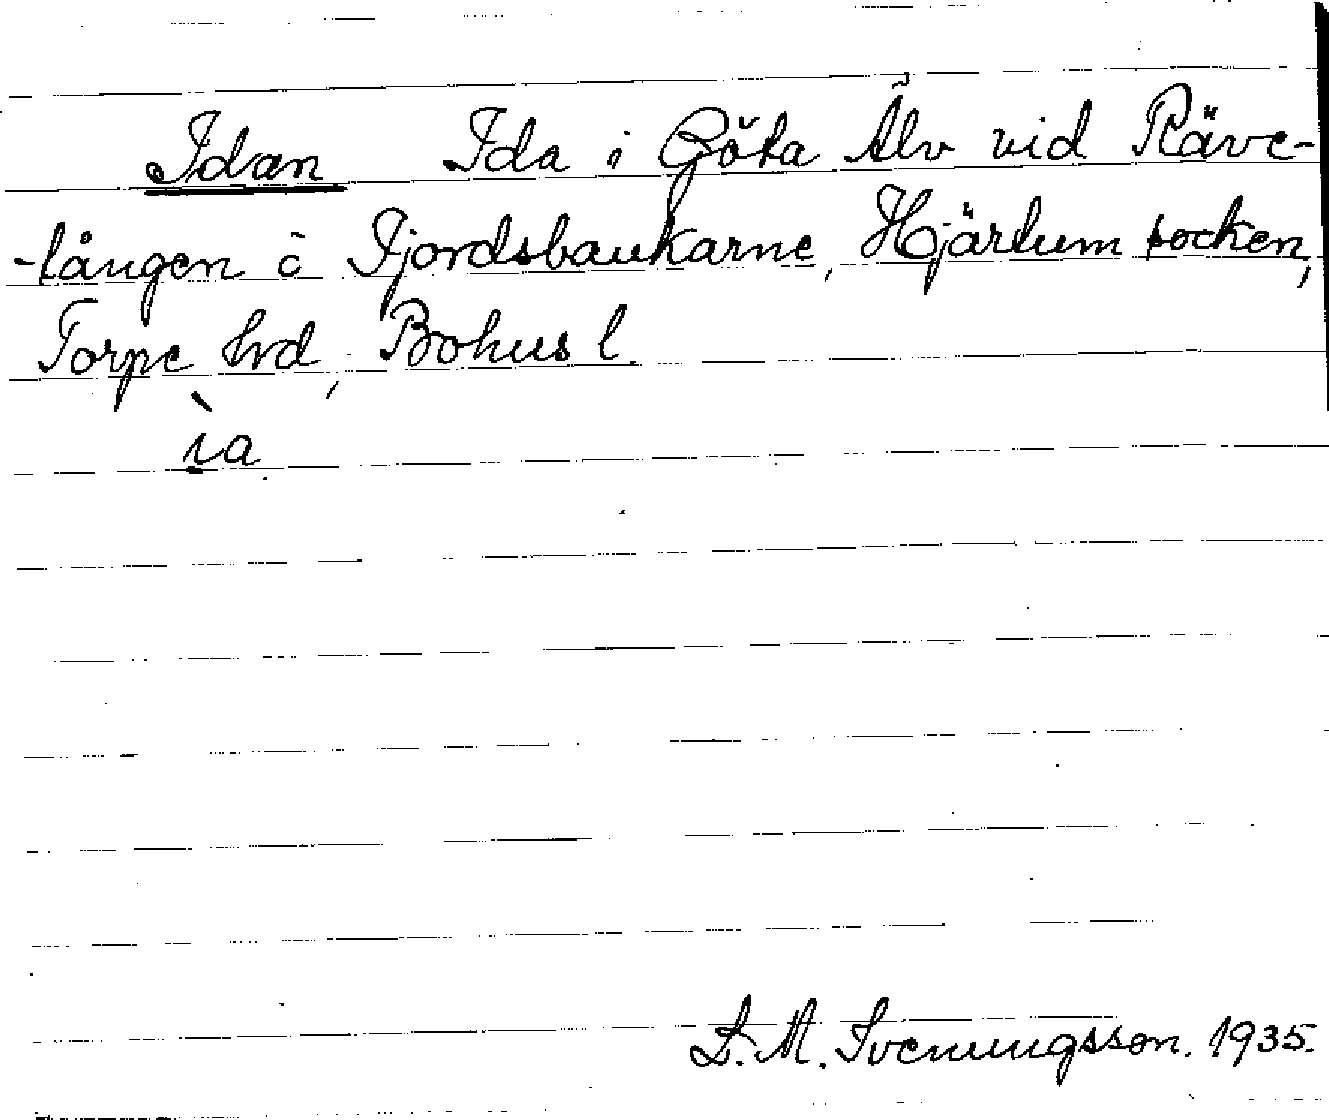 Idan Ida i Göta Älv vid Räve-
-lången ō Fjordsbankarne, Hjärtum socken,
Torpe hrd, Bohus l.
ìa
S. M. Svenungsson. 1935.